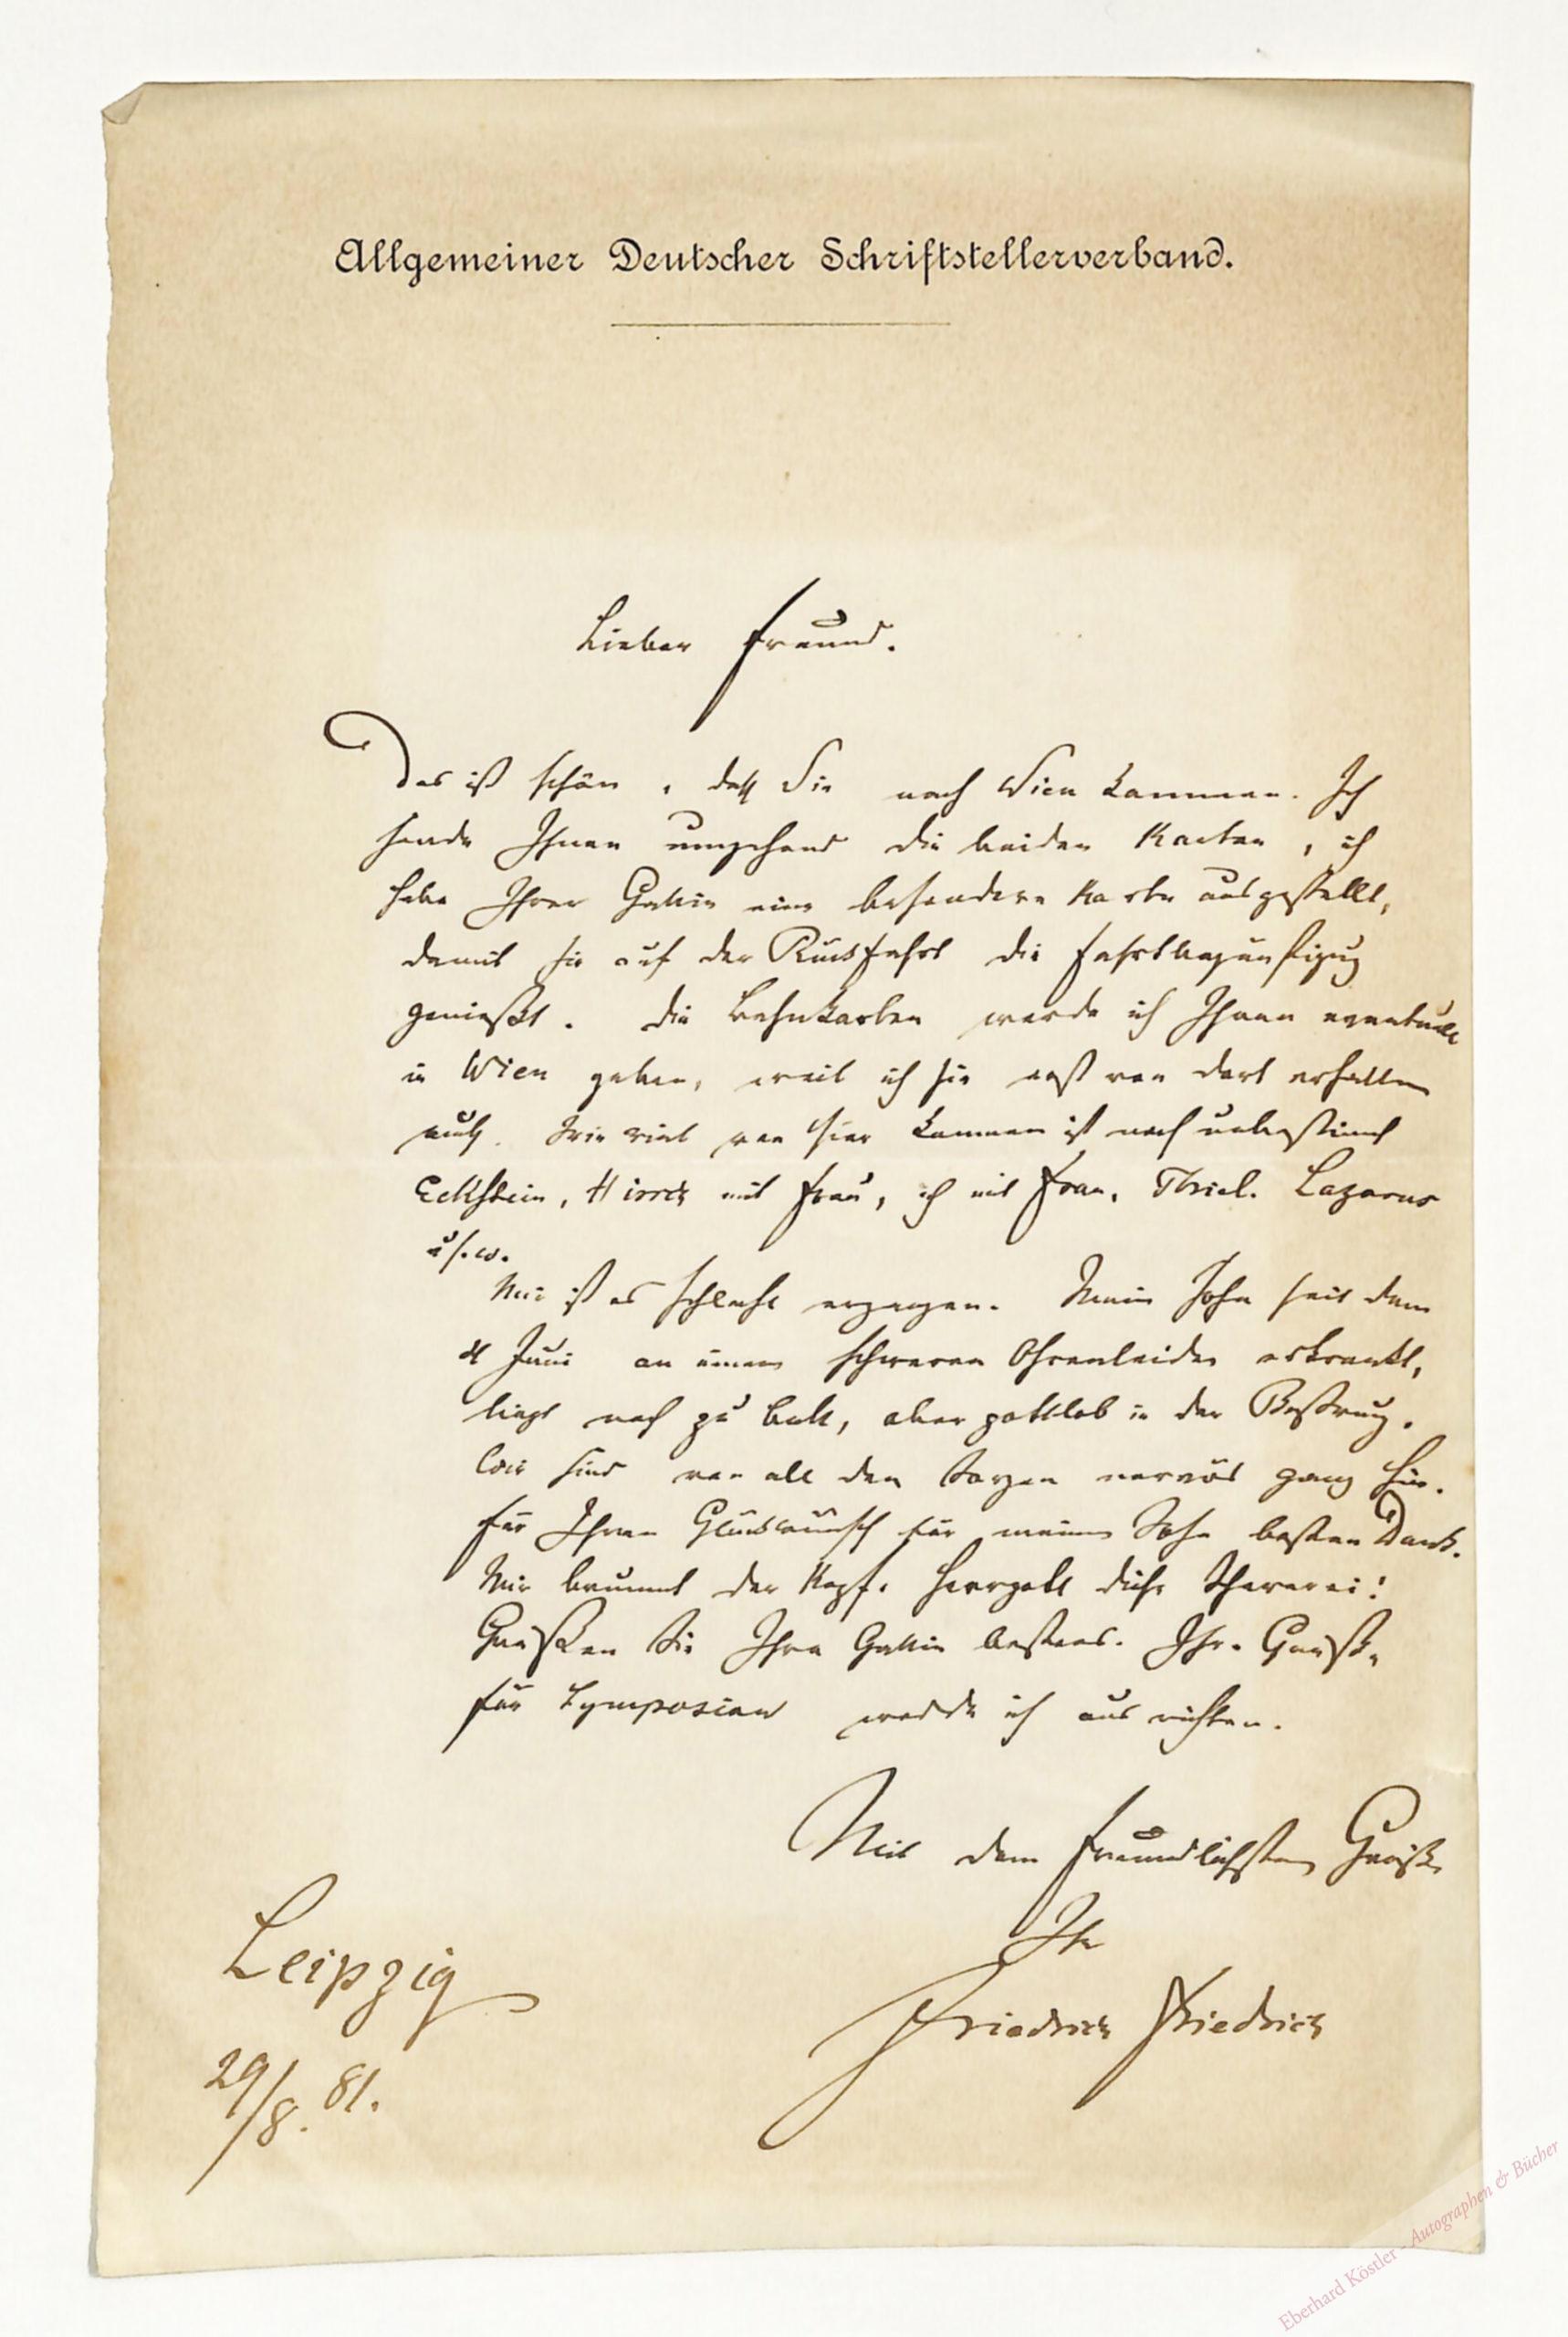 Allgemeiner Deutscher Schriftstellerverband.
Lieber Freund.
Das ist schön, daß Sie nach Wien kommen. Ich
sende Ihnen umgehend die beiden Karten, ich
habe Ihrer Gattin eine besondere Karte ausgestellt,
damit sie auf der Rückfahrt die Fahrtbegünstigung
genießt. Die Bahnkarten werde ich Ihnen eventuell
in Wien geben, weil ich sie erst von dort erhalten
muß. Wie viel von hier kommen ist noch unbestimmt
Eckstein, Hirsch mit Frau, ich mit Frau, Thiel. Lazarus
u.s.w.
Mir ist es schlecht ergangen. Mein Sohn seit dem
Juni an einem schweren Ohrenleiden erkrankt,
liegt noch zu Bett, aber gottlob in der Besserung.
Wir sind von all den Sorgen nervös ganz hin.
Für Ihren Glückwunsch für meinen Sohn besten Dank.
Mir brummt der Kopf. Herrgott diese Schererei!
Grüßen Sie Ihre Gattin bestens. Ihre Grüße
für Symposion werde ich ausrichten.
Mit dem freundlichsten Gruße
Ihr
Friedrich Friedrich
Leipzig
29/8. 81.
Eberhard Köstler - Autographen & Bücher